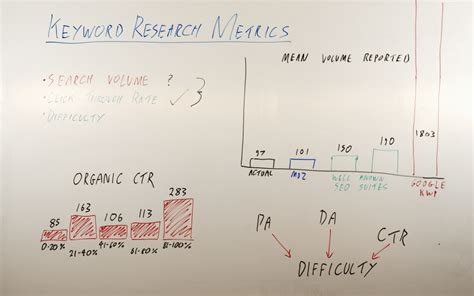 KEYWORD RESEARCH METRICS
• SEARCH VOLUME ?
• CLICK THROUGH RATE
• DIFFICULTY
MEAN VOLUME REPORTED
97
101
150
190
1803
ACTUAL
MOZ
WELL KNOWN
SEO SUITES
GOOGLE
KWP
ORGANIC CTR
85
163
106
113
283
0-20%
21-40%
41-60%
61-80%
81-100%
PA
DA
CTR
DIFFICULTY